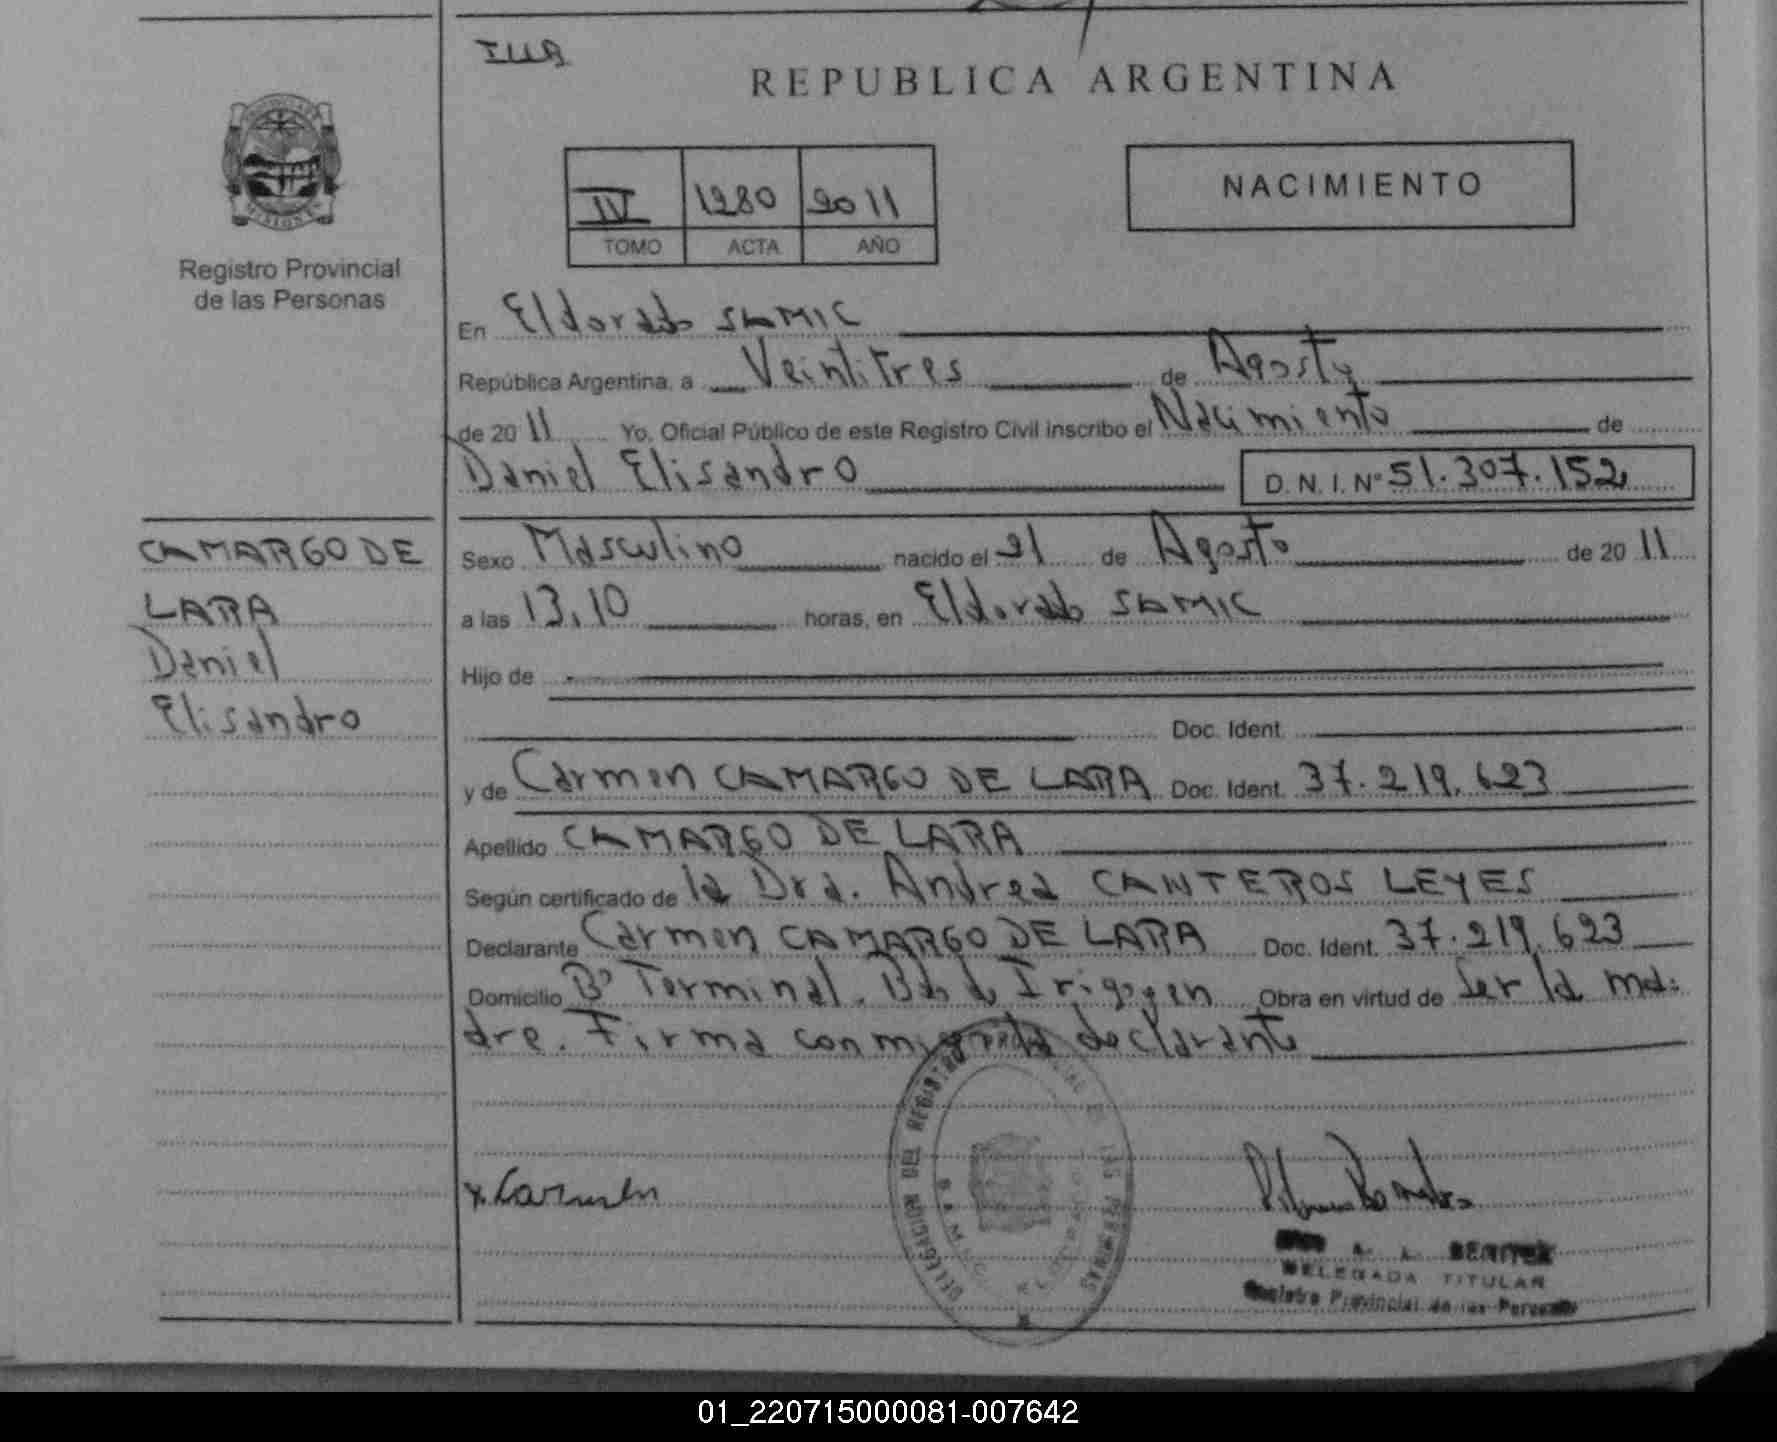 IUA
REPUBLICA ARGENTINA
IV 1280 2011
TOMO ACTA AÑO
NACIMIENTO
MISIONES
Registro Provincial
de las Personas
En Eldorado SAMIC
República Argentina, a Veintitres de Agosto
de 2011 Yo, Oficial Público de este Registro Civil inscribo el Nacimiento de
Daniel Elisandro D.N.I.Nº 51.307.152
CAMARGO DE
LARA
Daniel
Elisandro
Sexo Masculino nacido el 21 de Agosto de 2011
a las 13,10 horas, en Eldorado SAMIC
Hijo de
Doc. Ident.
y de Carmen CAMARGO DE LARA Doc. Ident. 37.219.623
Apellido CAMARGO DE LARA
Según certificado de la Dra. Andrea CANTEROS LEYES
Declarante Carmen CAMARGO DE LARA Doc. Ident. 37.219.623
Domicilio Bº Terminal. Bdo de Irigoyen Obra en virtud de Ser la ma:
dre. Firma conmigo la declarante
DELEGACION DEL REGISTRO PROVINCIAL DE LAS PERSONAS
x Carmen
BENITEZ
DELEGADA TITULAR
Registro Provincial de las Personas
01_220715000081-007642